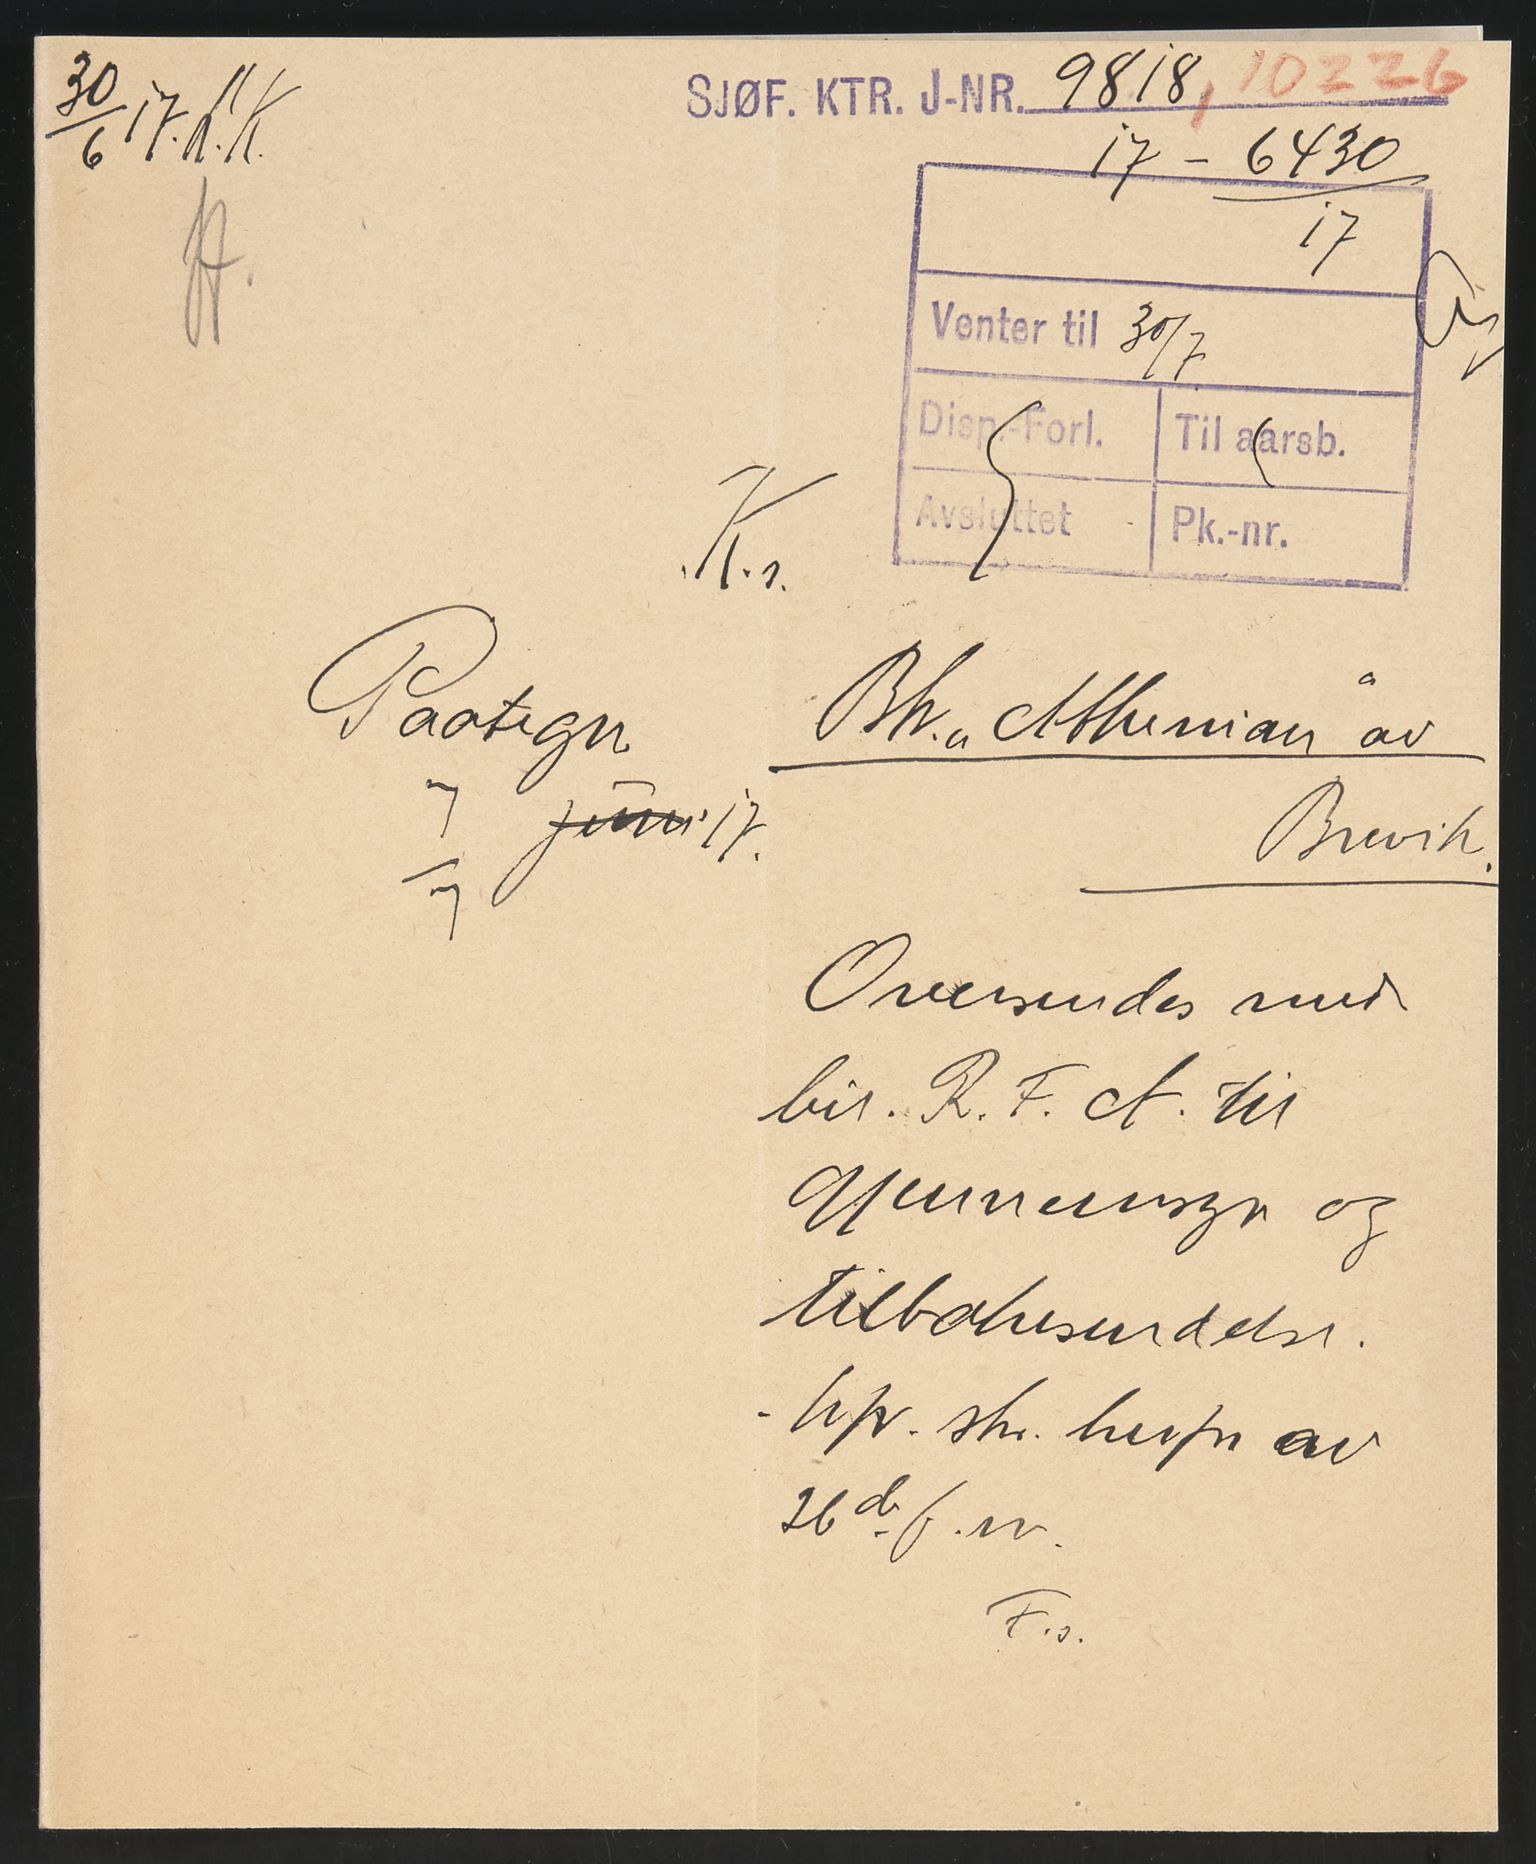 30/6 17. K.K.
SJØF. KTR. J-NR. 9818, 10226
17 - 6430
17
H.
Venter til 30/7
Disp.-Forl.
Til aarsb.
Avsluttet
Pk.-nr.
K. s.
Paategn.
7 juni 17.
7
Bk. „Athenian" av
Brevik.
Oversendes med
bil. R. F. A. til
gjennemsyn og
tilbakesendelse.
kfr. skr. herfra av
26 ds. f. m.
F. s.